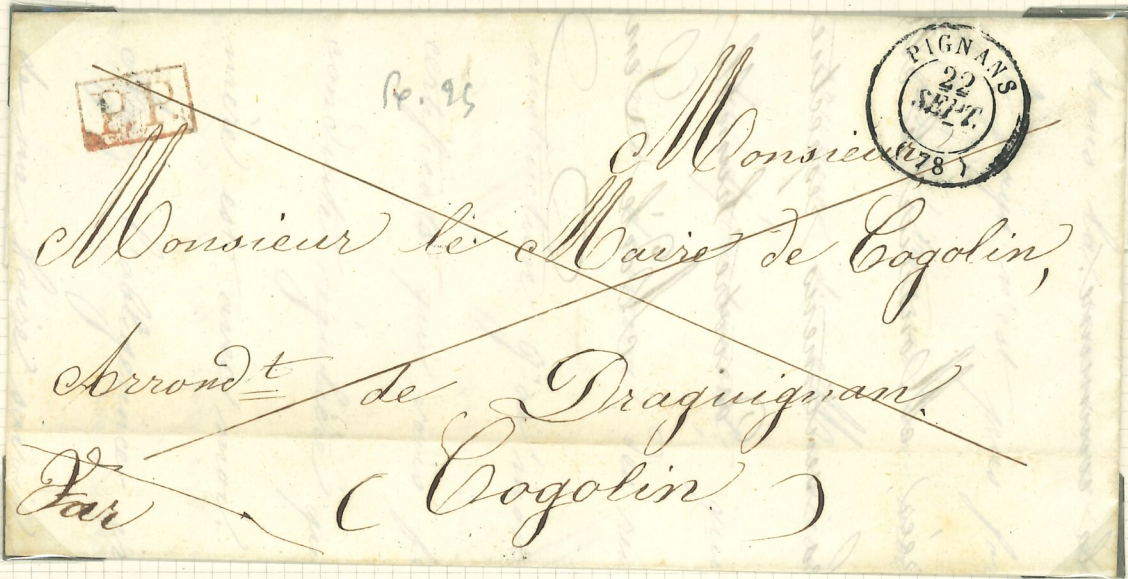 PIGNANS
22
SEPT.
(78)
P.P.
Monsieur
Monsieur le Maire de Cogolin,
Arrondt de Draguignan.
Var (Cogolin)